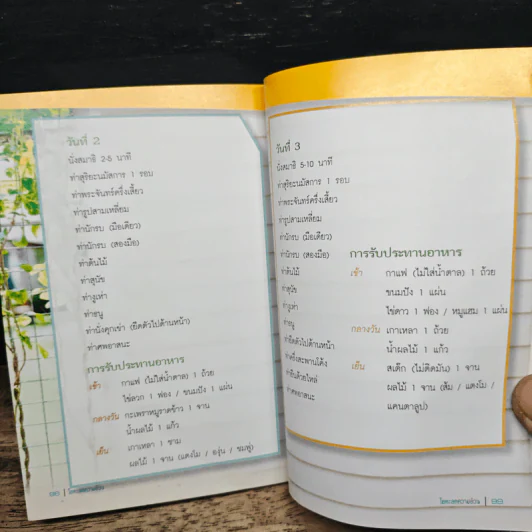 วันที่ 2
นั่งสมาธิ 2-5 นาที
ท่าสุริยะนมัสการ 1 รอบ
ท่าพระจันทร์ครึ่งเสี้ยว
ท่ารูปสามเหลี่ยม
ท่านักรบ (มือเดียว)
ท่านักรบ (สองมือ)
ท่าต้นไม้
ท่าสุนัข
ท่างูเห่า
ท่าธนู
ท่านั่งคุกเข่า (ยืดตัวไปด้านหน้า)
ท่าศพอาสนะ
การรับประทานอาหาร
เช้า กาแฟ (ไม่ใส่น้ำตาล) 1 ถ้วย
ไข่ลวก 1 ฟอง / ขนมปัง 1 แผ่น
กลางวัน กะเพราหมูราดข้าว 1 จาน
น้ำผลไม้ 1 แก้ว
เย็น เกาเหลา 1 ชาม
ผลไม้ 1 จาน (แตงโม / องุ่น / ชมพู่)
วันที่ 3
นั่งสมาธิ 5-10 นาที
ท่าสุริยะนมัสการ 1 รอบ
ท่าพระจันทร์ครึ่งเสี้ยว
ท่ารูปสามเหลี่ยม
ท่านักรบ (มือเดียว)
ท่านักรบ (สองมือ)
ท่าต้นไม้
ท่าสุนัข
ท่างูเห่า
ท่าธนู
ท่ายืดตัวไปด้านหน้า
ท่าครึ่งสะพานโค้ง
ท่ายืนด้วยไหล่
ท่าศพอาสนะ
การรับประทานอาหาร
เช้า กาแฟ (ไม่ใส่น้ำตาล) 1 ถ้วย
ขนมปัง 1 แผ่น
ไข่ดาว 1 ฟอง / หมูแฮม 1 แผ่น
กลางวัน เกาเหลา 1 ถ้วย
น้ำผลไม้ 1 แก้ว
เย็น สเต็ก (ไม่ติดมัน) 1 จาน
ผลไม้ 1 จาน (ส้ม / แตงโม /
แคนตาลูป)